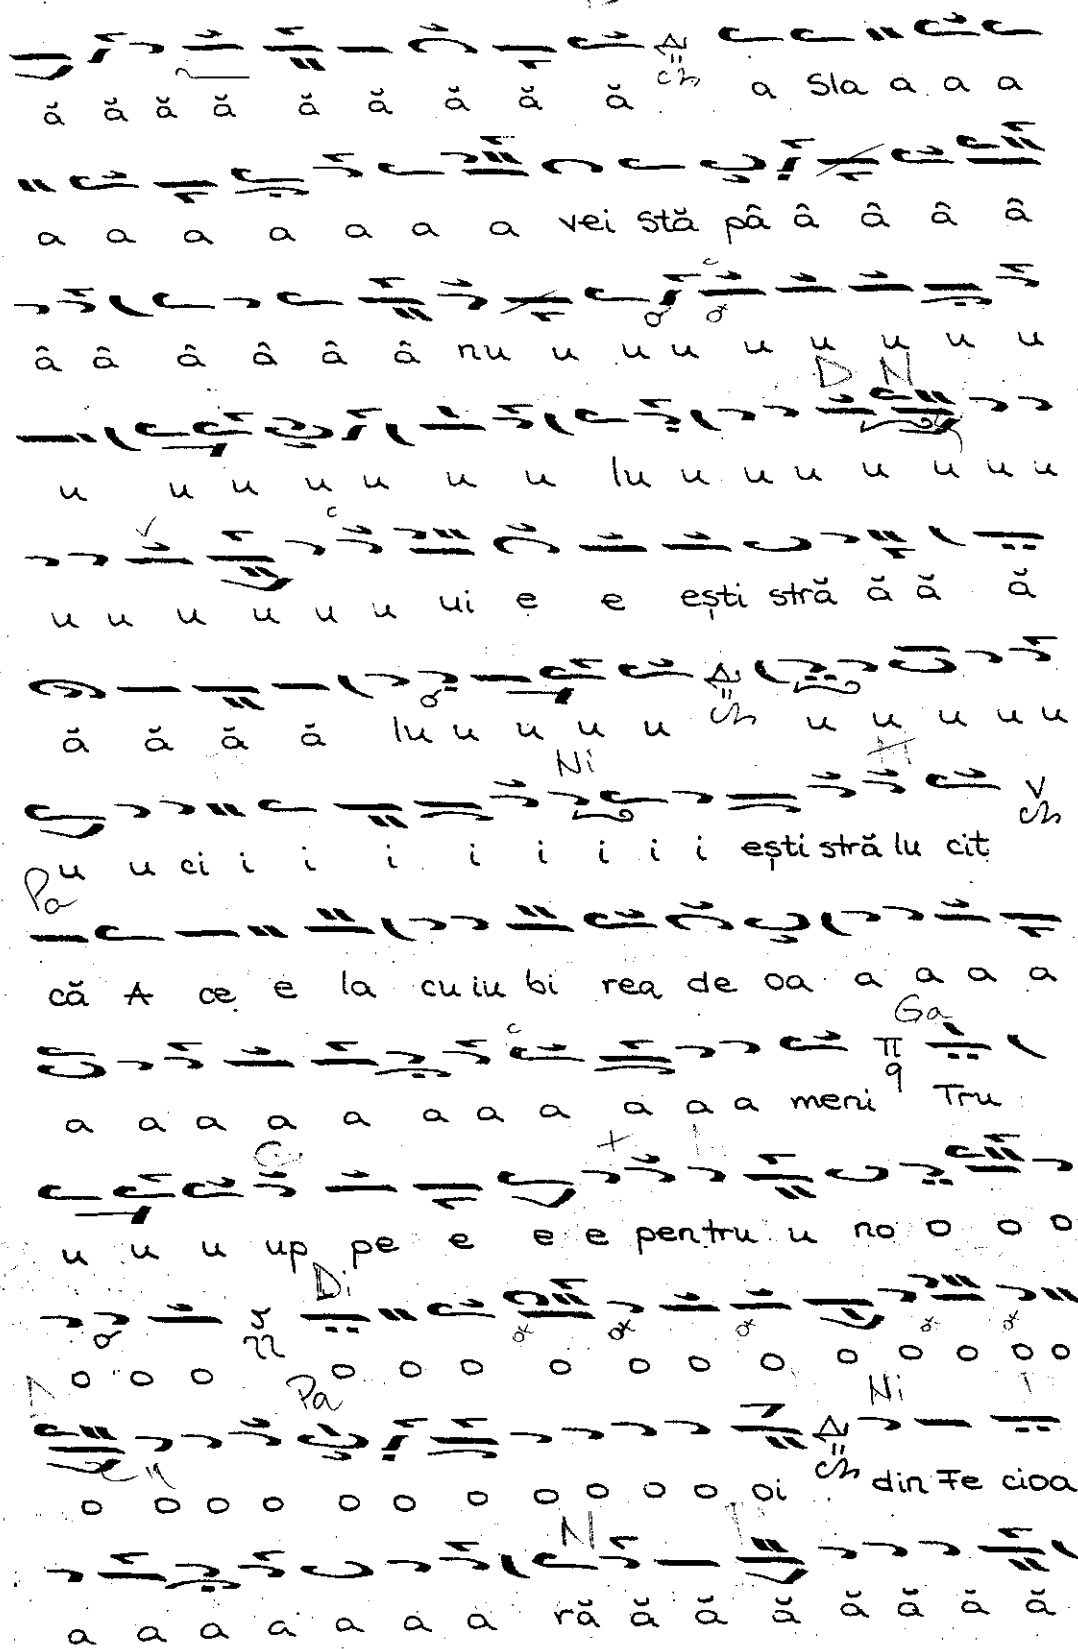 ă ă ă ă ă ă ă ă ă a Sla a a a
a a a a a a a vei stă pâ â â â â
â â â â â â nu u u u u u u u u
D N
u u u u u u u lu u u u u u u u
u u u u u u ui e e ești stră ă ă ă
ă ă ă ă lu u u u u u u u u u
Ni
u u ci i i i i i i i i ești stră lu cit
Pa
că A ce e la cu iu bi rea de oa a a a a
Ga
a a a a a a a a a a a meni Tru
u u u up pe e e e pentru u no o o o
Di
o o o o o o o o o o o o o o o
Pa Ni
o o o o o o o o o o o oi din Fe cioa
N
a a a a a a a ră ă ă ă ă ă ă ă